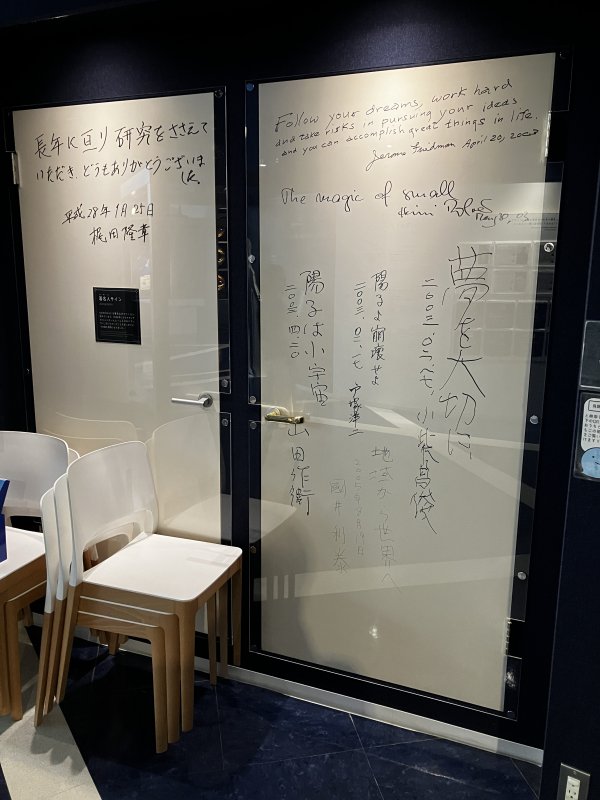 長年に亘り研究をささえて
いただき、どうもありがとうございま
した
平成28年1月25日
梶田隆章
著名人サイン
Follow your dreams, work hard
and take risks in pursuing your ideas
and you can accomplish great things in life.
Jerome Friedman April 20, 2003
The magic of small
夢を大切に
二〇〇三・〇二・一七、小柴昌俊
陽子よ崩壊せよ
二〇〇三、〇二、一七 戸塚洋二
地域から世界へ
2005年8月19日
國井利泰
陽子は小宇宙
二〇〇三、四、二〇
山田作衛